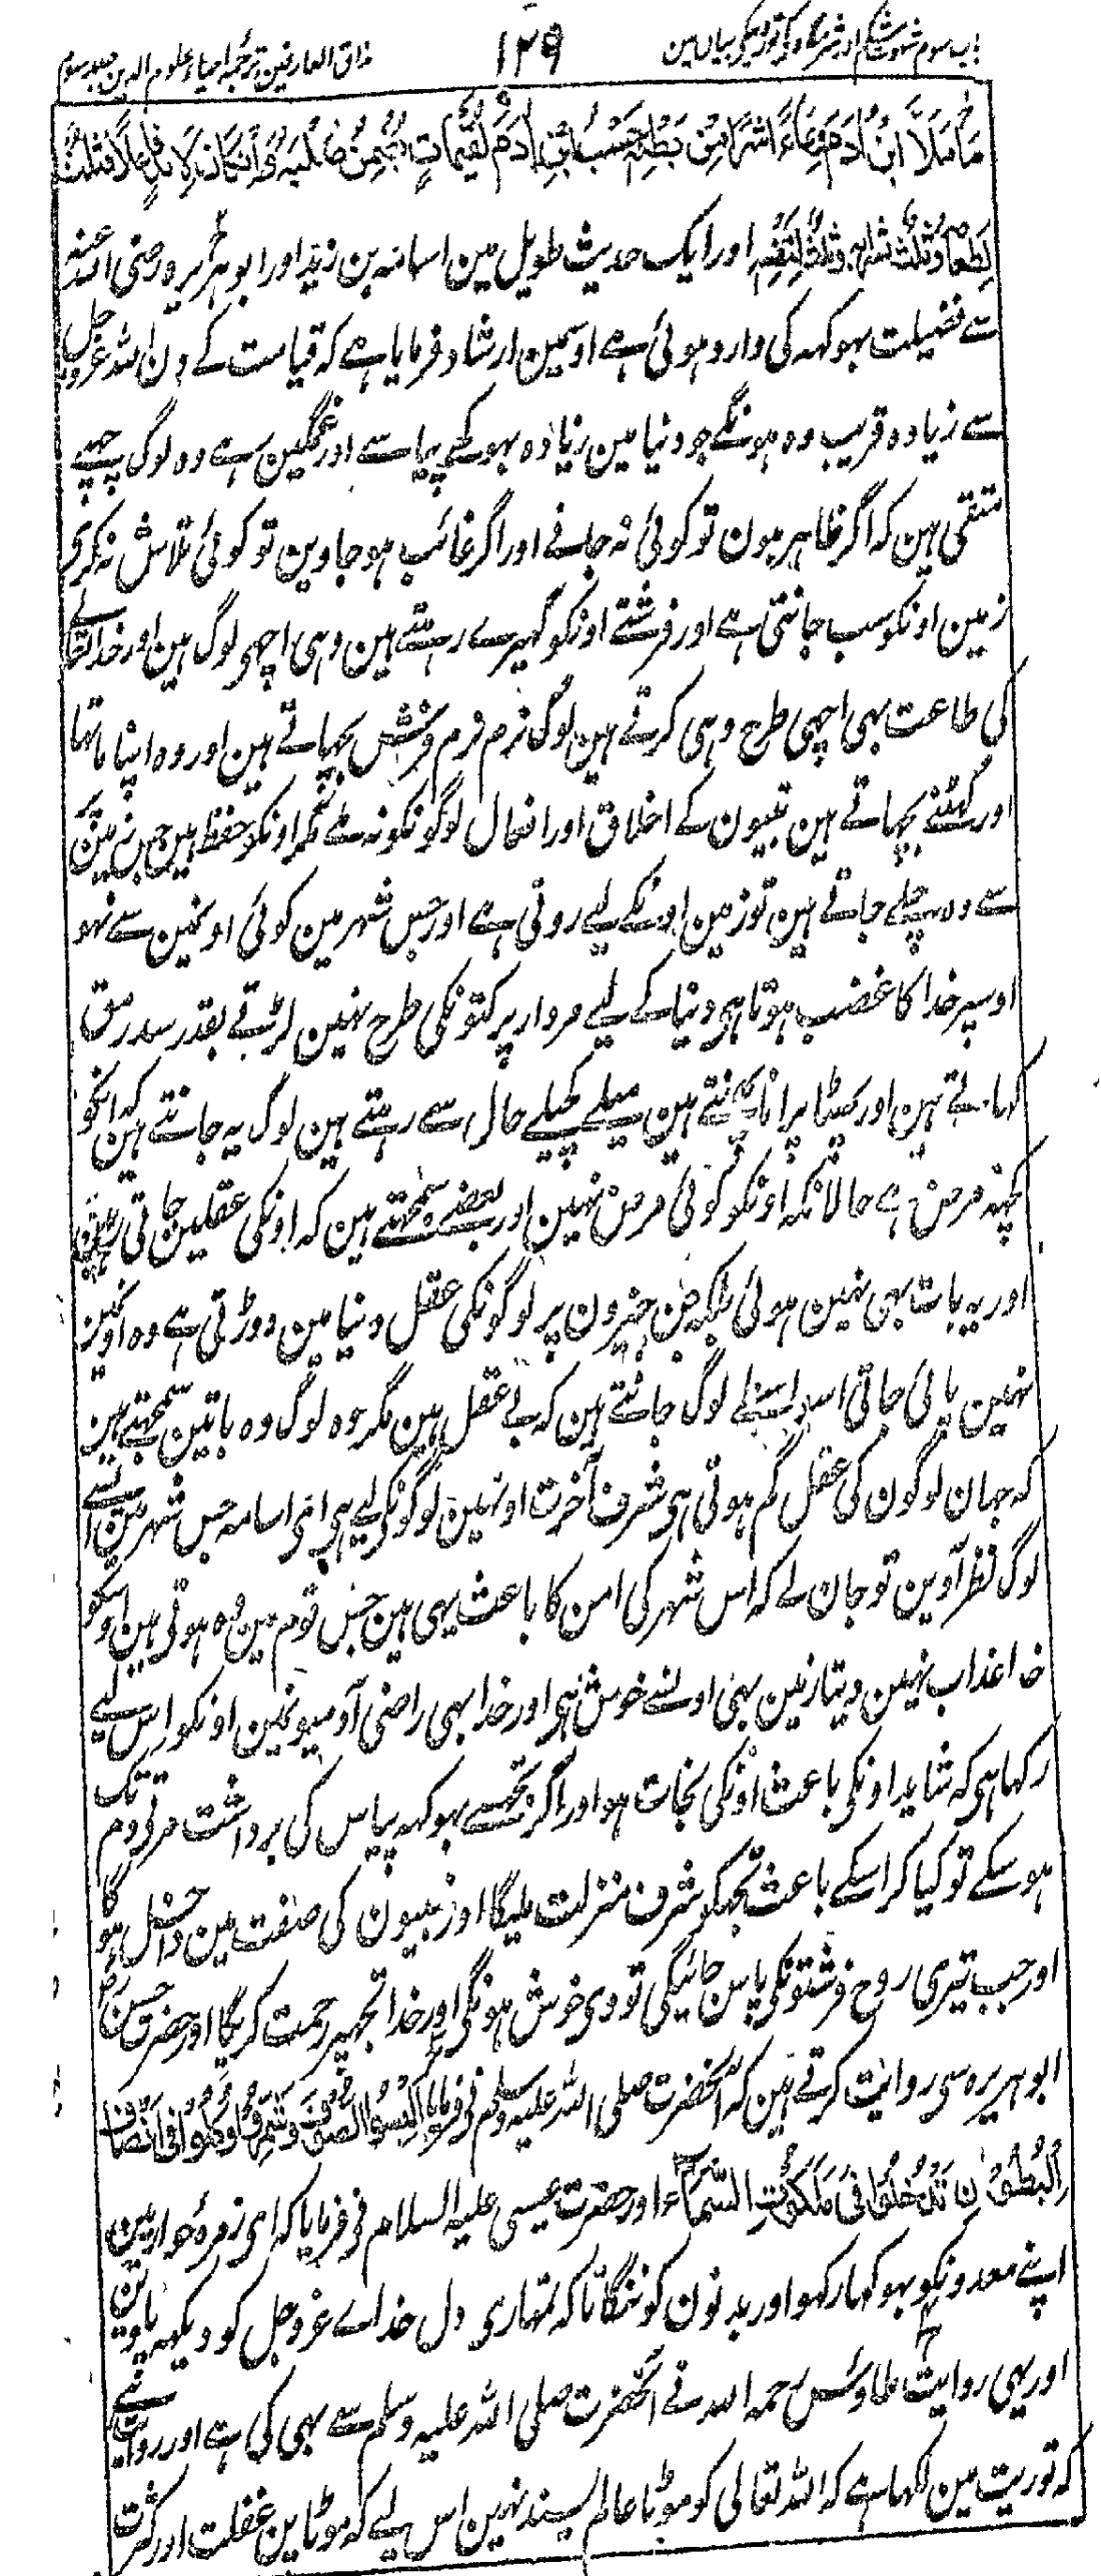 باب سوم شہوت شکم اور شرمگاہ کی توڑنیکی بیان مین
۱۲۹
مذاق العارفین ترجمہ احیاء علوم الدین جلد سوم
مَا مَلَأَ ابْنُ اٰدَمَ وِعَاءً شَرًّا مِنْ بَطْنِهٖ حَسْبُ ابْنِ اٰدَمَ لُقَيْمَاتٍ يُقِمْنَ صُلْبَهٗ وَاِنْ كَانَ لَابُدَّ فَاعِلًا فَثُلُثٌ
لِطَعَامِهٖ وَثُلُثٌ لِشَرَابِهٖ وَثُلُثٌ لِنَفَسِهٖ اور ایک حدیث طویل مین اسامہ بن زید اور ابو ہریرہ رضی اللہ عنہ
سے فضیلت بہوکہہ کی وارد ہوئی ہے اوسمین ارشاد فرمایا ہے کہ قیامت کے دن اللہ عزوجل
سے زیادہ قریب وہ ہونگے جو دنیا مین زیادہ بہوکے پیاسے اور غمگین رہے وہ لوگ چہپے
متقی ہین کہ اگر ظاہر ہون تو کوئی نہ جانے اور اگر غائب ہو جاوین تو کوئی تلاش نہ کری
زمین اونکو سب جانتی ہے اور فرشتے اونکو گہیرے رہتے ہین وہی اچھی لوگ ہین اور خدا تعالے
کی طاعت بہی اچھی طرح وہی کرتے ہین لوگ نرم نرم فرش بچہاتے ہین اور وہ اپنا ماتہا
اور گہٹنے بچہاتے ہین نبیون کے اخلاق اور افعال لوگونکو نہ ملے مگر اونکو حفظ ہین جس زمین
سے وہ چلے جاتے ہین تو زمین اونکے لیے روتی ہے اور جس شہر مین کوئی اونمین سے نہو
اوسپر خدا کا غضب ہوتا ہی دنیا کے لیے مردار پر کتونکی طرح نہین لڑتے بقدر سدرمق
کہاتے ہین اور پہٹا پرانا پہنتے ہین میلے کچیلے حال سے رہتے ہین لوگ یہ جانتے ہین کہ انکو
کچہہ مرض ہے حالانکہ اونکو کوئی مرض نہین اور بعضے سمجھتے ہین کہ اونکی عقلین جاتی رہین
اور یہ بات بہی نہین ہوئی بلکہ جن چیزون پر لوگونکی عقل دنیا مین دوڑتی ہے وہ اونمین
نہین پائی جاتی اسواسطے لوگ جانتے ہین کہ بے عقل ہین مگر وہ لوگ وہ باتین سمجھتے ہین
کہ جہان لوگون کی عقل گم ہوتی ہی شرف آخرت اونہین لوگونکی لیے ہی ای اسامہ جس شہر مین ایسے
لوگ نظر آوین تو جان لے کہ اس شہر کی امن کا باعث یہی ہین جس قوم مین وہ ہوتی ہین اوسکو
خدا عذاب نہین دیتا زمین بہی اونسے خوش ہی اور خدا بہی راضی آدمیونمین اونکو اس لیے
رکہا ہی کہ شاید اونکی باعث اونکی نجات ہو اور اگر تجھسے بہوکہہ پیاس کی برداشت مرتی دم تک
ہوسکے تو کیا کر اسکے باعث تجہکو شرف منزلت ملیگا اور نبیون کی صفت مین داخل ہوگا
اور جب تیری روح فرشتونکی پاس جائیگی تو وی خوش ہونگی اور خدا تجھپر رحمت کریگا اور حضرت حسن رض
ابو ہریرہ سی روایت کرتے ہین کہ آنحضرت صلی اللہ علیہ وسلم نی فرمایا اِلْبَسُوا الصُّوْفَ وَشَمِّرُوْا وَكُلُوْا فِيْ اَنْصَافِ
الْبُطُوْنِ تَدْخُلُوْا فِيْ مَلَكُوْتِ السَّمَآءِ اور حضرت عیسی علیہ السلام نی فرمایا کہ ای زمرۂ حوارئین
اپنے معدونکو بہوکہا رکہو اور بدنون کو ننگا تاکہ تمہاری دل خداے عزوجل کو دیکہہ پاوین
اور یہی روایت طاوٴس رحمہ اللہ نے آنحضرت صلی اللہ علیہ وسلم سے بہی کی ہے اور روایت ہے
کہ توریت مین لکہا ہے کہ اللہ تعالی کو موٹا عالم پسند نہین اس لیے کہ موٹاپن غفلت اور کثرت